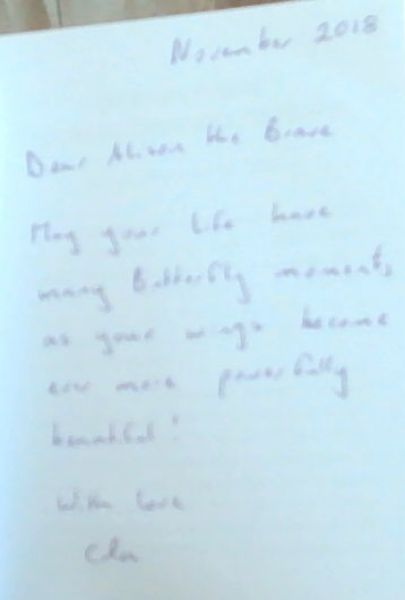 November 2018
Dear Alison the Brave
May your life have
many Butterfly moments,
as your wings become
ever more powerfully
beautiful!
With love